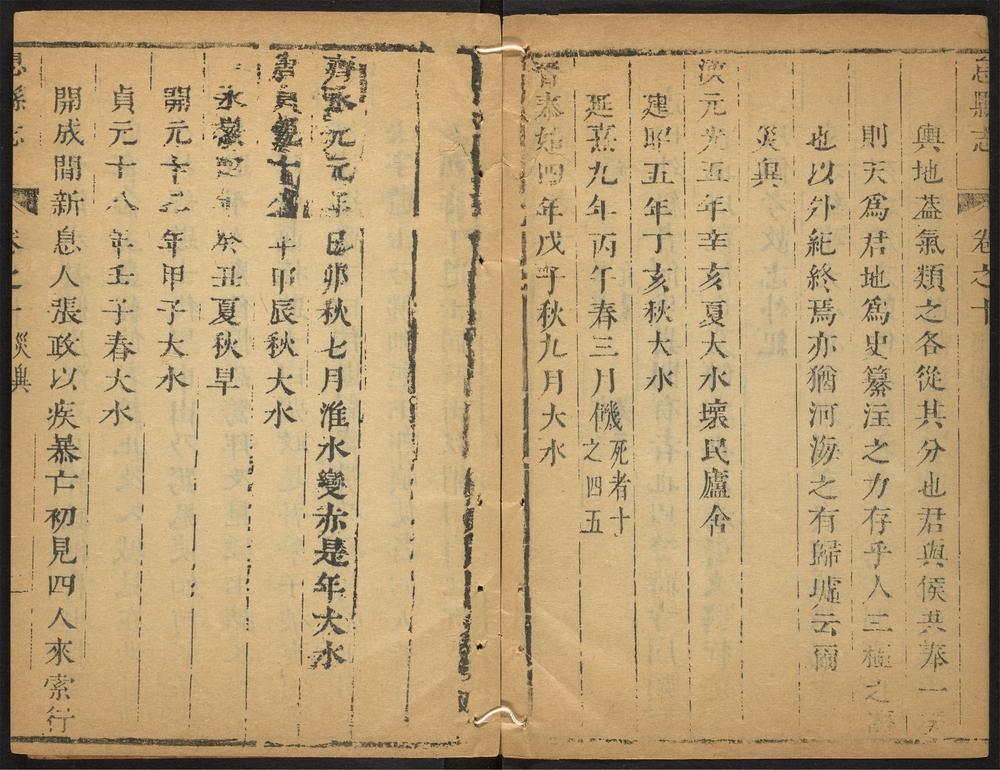 息縣志
卷之十
輿地葢氣類之各從其分也君與侯共奉一天
則天爲君地爲史纂注之力存乎人三極之
也以外紀終焉亦猶河海之有歸墟云爾
災異
漢元光五年辛亥夏大水壞民廬舍
建昭五年丁亥秋大水
延熹九年丙午春三月饑死者十之四五
晋泰始四年戊子秋九月大水
齊永元元年巳卯秋七月淮水變赤是年大水
唐貞觀十八年甲辰秋大水
永癸丑夏秋旱
開元十二年甲子大水
貞元十八年壬子春大水
開成間新息人張政以疾暴亡初見四人來索行
息縣志
卷之十
災異